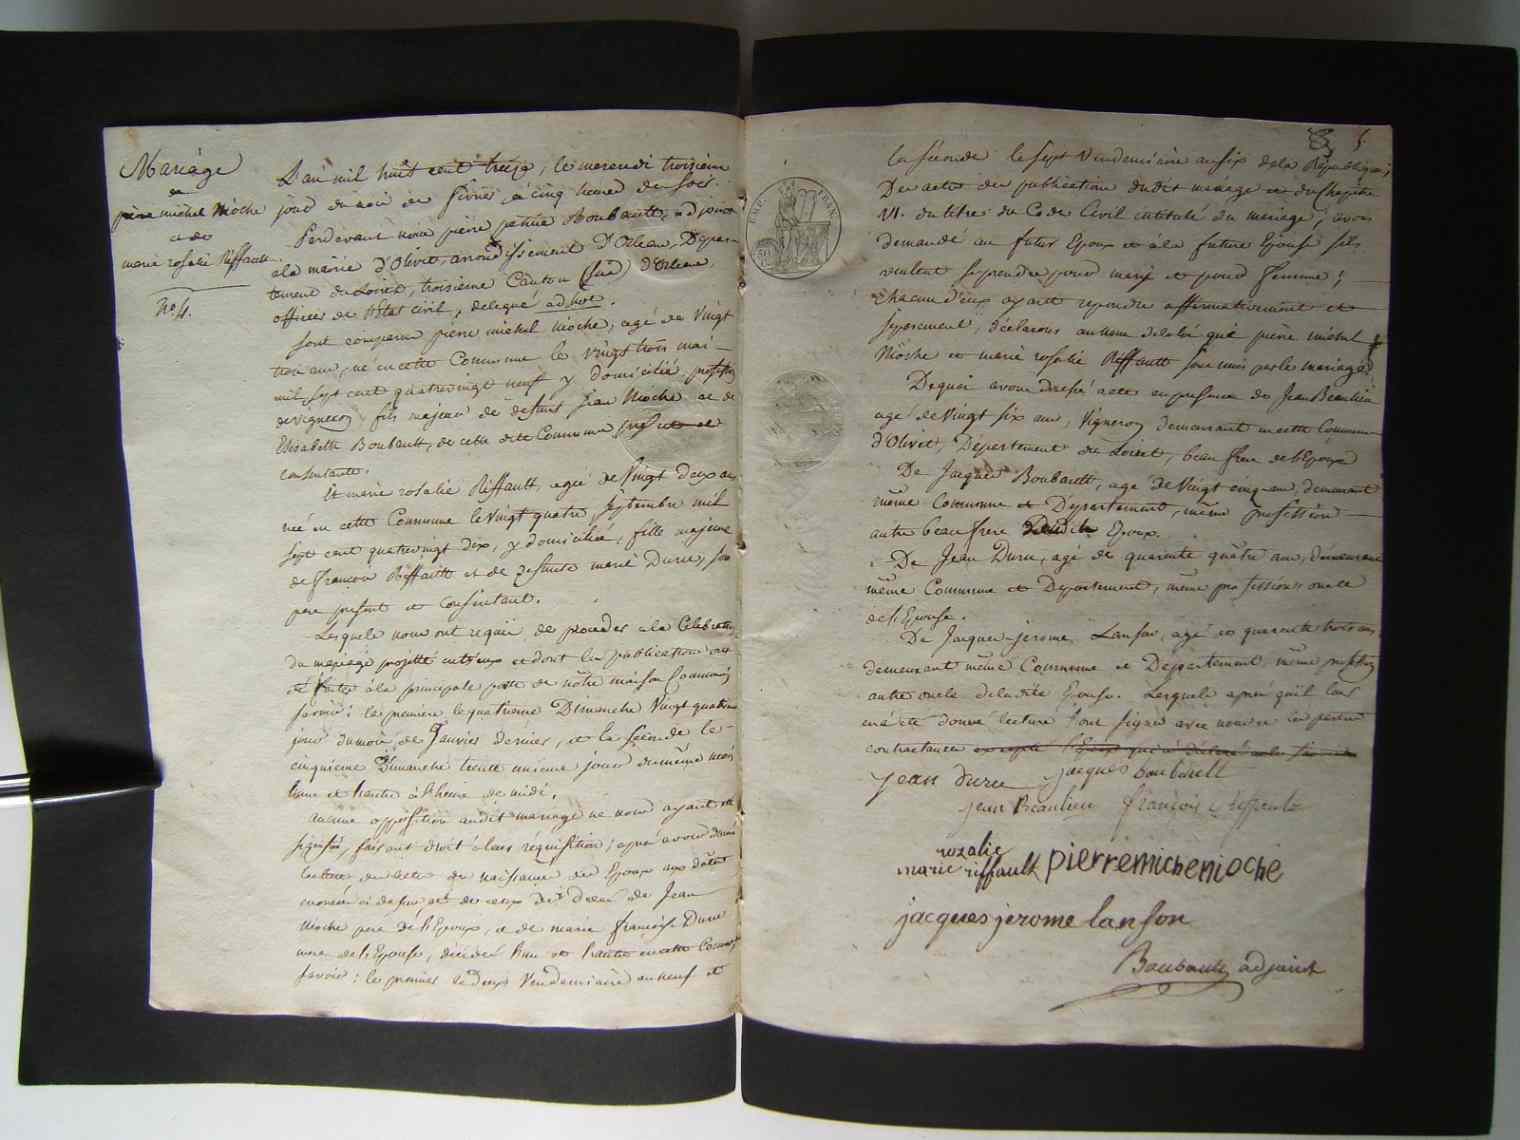 Mariage
de
pierre michel Mioche
et de
marie rosalie Riffault
No. 4.
L'an mil huit cent treize, le mercredi troisième
jour du mois de fevrier, à cinq heures du soir.
Pardevant nous pierre patrice Boubault, adjoint
à la mairie d'Olivet, arrondissement d'Orléans, Depar-
tement du Loiret, troisième Canton (sud) d'Orléans,
officier de l'Etat civil, delegué ad hoc.
sont comparus pierre michel Mioche, agé de Vingt
trois ans, né en cette Commune le vingt trois mai
mil sept cent quatrevingt neuf y domicilié, profession
de vigneron, fils majeur de defunt Jean Mioche et de
Elisabeth Boubault, de cette dite Commune presente et
consentante.
Et marie rosalie Riffault, agée de Vingt deux ans
née en cette Commune le vingt quatre septembre mil
sept cent quatrevingt dix, y domiciliée, fille majeure
de françois Riffault et de defunte marie Duru, son
pere present et Consentant.
Lesquels nous ont requis de proceder à la Celebration
du mariage projetté entr'eux et dont les publications ont
été faites à la principale porte de nôtre maison Commune
savoir: la premiere le quatrieme Dimanche Vingt quatrieme
jour du mois de Janvier dernier, et la seconde le
cinquieme Dimanche trente unieme jour du même mois
l'une et l'autre à l'heure de midi.
aucune opposition audit mariage ne nous ayant été
signifiée, faisant droit à leur réquisition; après avoir donné
lecture des actes de naissance des Epoux aux dattes
énoncées ci dessus et de ceux de décès de Jean
Mioche pere de l'Epoux, et de marie françoise Duru
mere de l'Epouse, décédés l'un et l'autre en cette Commune
savoir: le premier le deux Vendemiaire an neuf et
5.
la seconde le sept Vendemiaire an six de la République;
Des actes de publication dudit mariage et du Chapitre
VI. du titre du Code Civil intitulé du mariage; avons
demandé au futur Epoux et à la future Epouse s'ils
veulent se prendre pour mari et pour femme;
chacun d'eux ayant repondu affirmativement et
séparement, déclarons au nom de la loi que pierre michel
Mioche et marie rosalie Riffault sont unis par le mariage.
De quoi avons dressé acte en presence de Jean Beaulieu
agé de Vingt six ans, Vigneron demeurant en cette Commune
d'Olivet, Département du Loiret, beau frere de l'Epoux
De Jacques Boubault, agé de Vingt cinq ans, demeurant
même Commune et Département, même profession
autre beau frere dudit Epoux.
De Jean Duru, agé de quarante quatre ans, demeurant
même Commune et Departement, même profession oncle
de l'Epouse.
De Jacques-jerome Lanson, agé de quarante trois ans
demeurant même Commune et Departement, même profession
autre oncle de la dite Epouse. Lesquels après qu'il leur
en a été donné lecture l'ont signé avec nous et les parties
contractantes
jean duru jacques boubault
jean Beaulieu françois riffault
rozalie
marie riffault pierremichemioche
jacques jerome lanson
Boubault adjoint